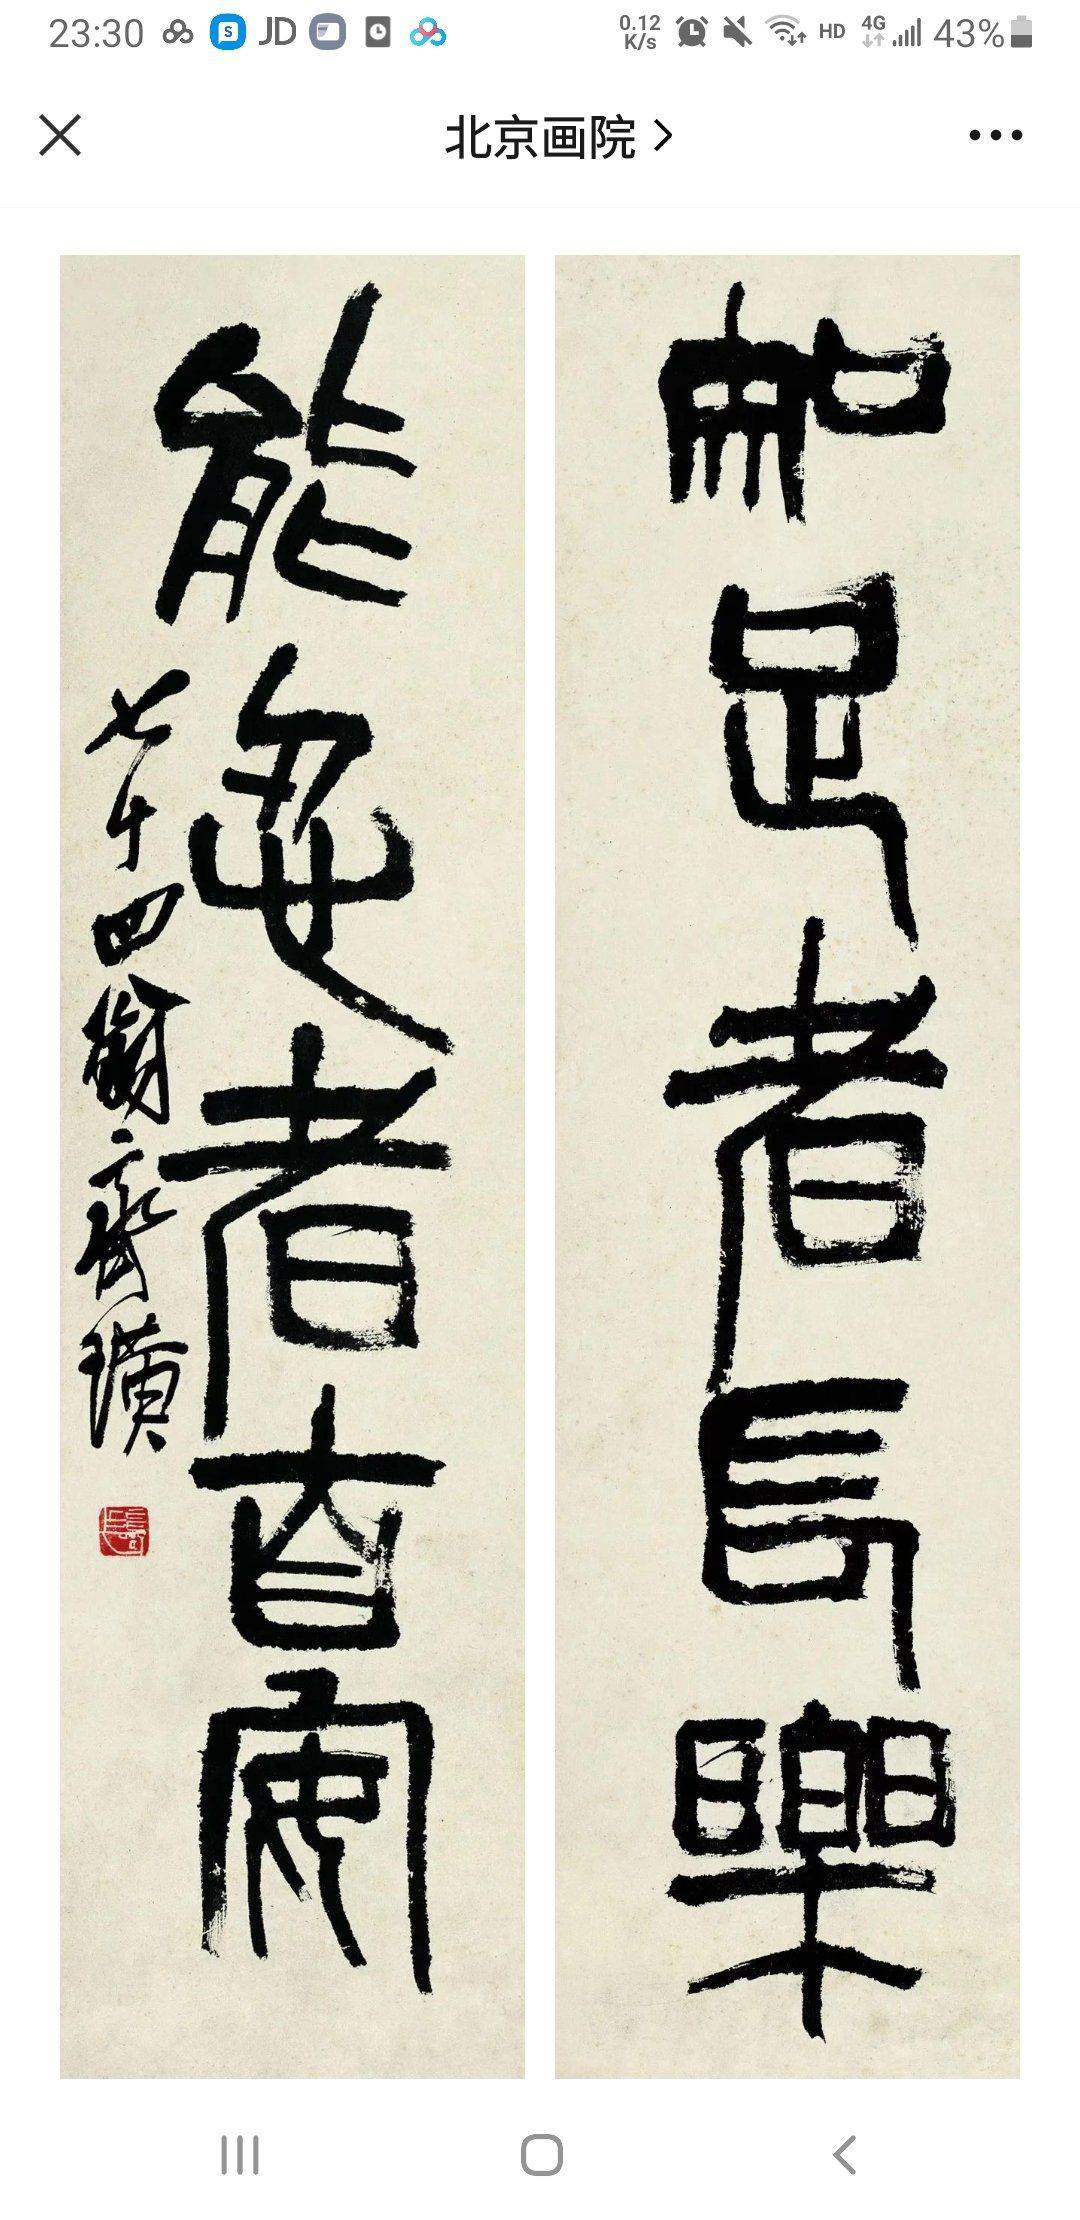 23:30 S JD 0.12 K/s HD 4G 43%
北京画院
知足者長樂
能忍者自安
七十四翁齊璜